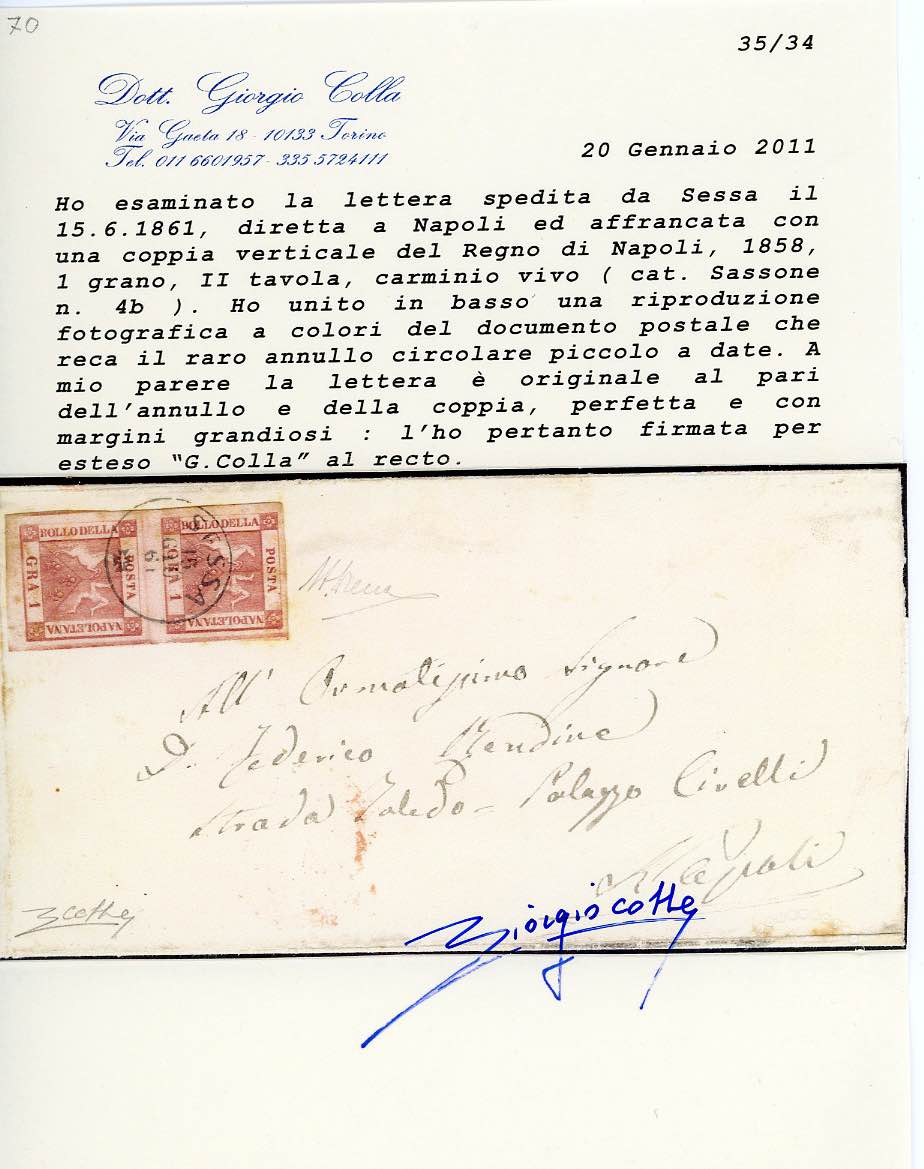 70
35/34
Dott. Giorgio Colla
Via Gaeta 18 - 10133 Torino
Tel. 011 6601957 - 335 5724111
20 Gennaio 2011
Ho esaminato la lettera spedita da Sessa il
15.6.1861, diretta a Napoli ed affrancata con
una coppia verticale del Regno di Napoli, 1858,
1 grano, II tavola, carminio vivo ( cat. Sassone
n. 4b ). Ho unito in basso una riproduzione
fotografica a colori del documento postale che
reca il raro annullo circolare piccolo a date. A
mio parere la lettera è originale al pari
dell'annullo e della coppia, perfetta e con
margini grandiosi : l'ho pertanto firmata per
esteso "G.Colla" al recto.
BOLLO DELLA
POSTA
NAPOLETANA
GRA 1
BOLLO DELLA
POSTA
NAPOLETANA
GRA 1
SESSA
15
GIU
61
All' Ornatissimo Signore
D. Federico
Strada Toledo = Palazzo Civelli
Napoli
GColla
Giorgio Colla